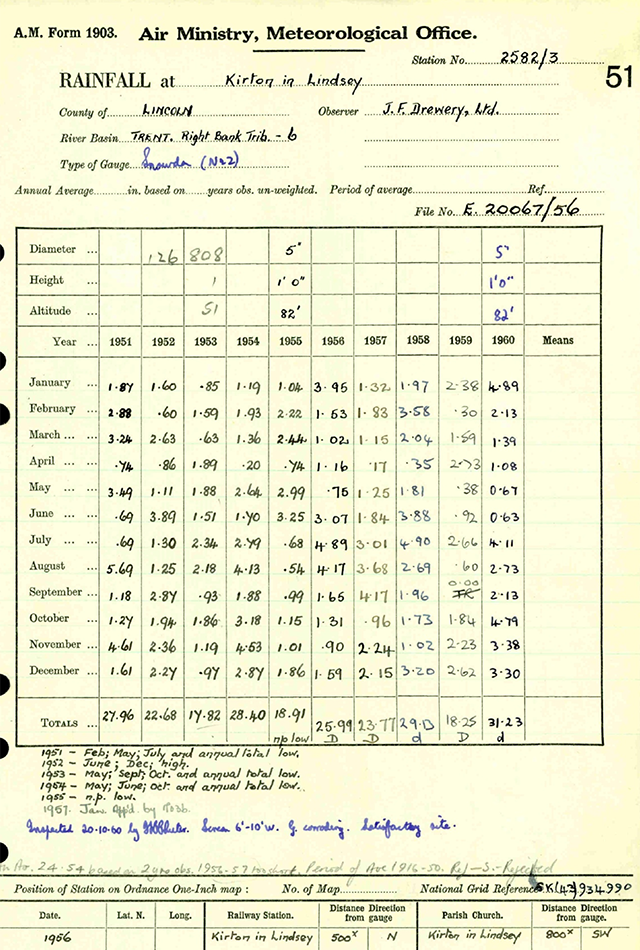 A.M. Form 1903. Air Ministry, Meteorological Office.
Station No. 2582/3
51
RAINFALL at Kirton in Lindsey
County of LINCOLN Observer J.F. Drewery, Ltd.
River Basin TRENT. Right Bank Trib. - 6
Type of Gauge Snowdon (No2)
Annual Average in. based on years obs. un-weighted. Period of average Ref.
File No. E. 20067/56
Diameter ... 126 808 5" 5"
Height ... 1 1' 0" 1'0"
Altitude ... 51 82' 82'
Year ... 1951 1952 1953 1954 1955 1956 1957 1958 1959 1960 Means
January ... 1.87 1.60 .85 1.19 1.04 3.95 1.32 1.97 2.38 4.89
February ... 2.88 .60 1.59 1.93 2.22 1.53 1.83 3.58 .30 2.13
March ... ... 3.24 2.63 .63 1.36 2.44 1.02 1.15 2.04 1.59 1.39
April ... ... .74 .86 1.89 .20 .74 1.16 .17 .35 2.73 1.08
May ... ... 3.49 1.11 1.88 2.64 2.99 .75 1.25 1.81 .38 0.67
June ... ... .69 3.89 1.51 1.70 3.25 3.07 1.84 3.88 .92 0.63
July ... ... .69 1.30 2.34 2.79 .68 4.89 3.01 4.90 2.66 4.11
August ... 5.69 1.25 2.18 4.13 .54 4.17 3.68 2.69 .60 2.73
0.00
September ... 1.18 2.87 .93 1.88 .99 1.65 4.17 1.96 TR 2.13
October ... 1.27 1.94 1.86 3.18 1.15 1.31 .96 1.73 1.84 4.79
November ... 4.61 2.36 1.19 4.53 1.01 .90 2.24 1.02 2.23 3.38
December ... 1.61 2.27 .97 2.87 1.86 1.59 2.15 3.20 2.62 3.30
TOTALS 27.96 22.68 17.82 28.40 18.91 25.99 23.77 29.13 18.25 31.23
np low D D d D d
1951 - Feb; May; July and annual total low.
1952 - June; Dec; high.
1953 - May; Sept; Oct. and annual total low.
1954 - May; June; Oct and annual total low.
1955 - n.p. low.
1957. Jan. App'd. by
Inspected 20.10.60 by Screen 6'-10'W. G. corroding. Satisfactory site.
Av. 24.54 based on 2 yrs obs. 1956-57 Period of Ave 1916-50. Ref -S.- Rejected
Position of Station on Ordnance One-Inch map : No. of Map National Grid Reference SK(43)934990
Date. Lat. N. Long. Railway Station. Distance Direction from gauge Parish Church. Distance Direction from gauge
1956 Kirton in Lindsey 500x N Kirton in Lindsey 800x SW